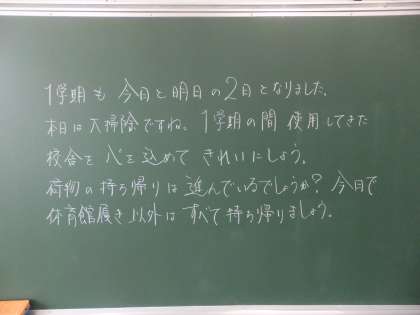 1学期も 今日と明日の2日となりました。
本日は大掃除ですね。1学期の間 使用してきた
校舎を 心を込めて きれいにしよう。
荷物の持ち帰りは 進んでいるでしょうか? 今日で
体育館履き以外は すべて持ち帰りましょう。